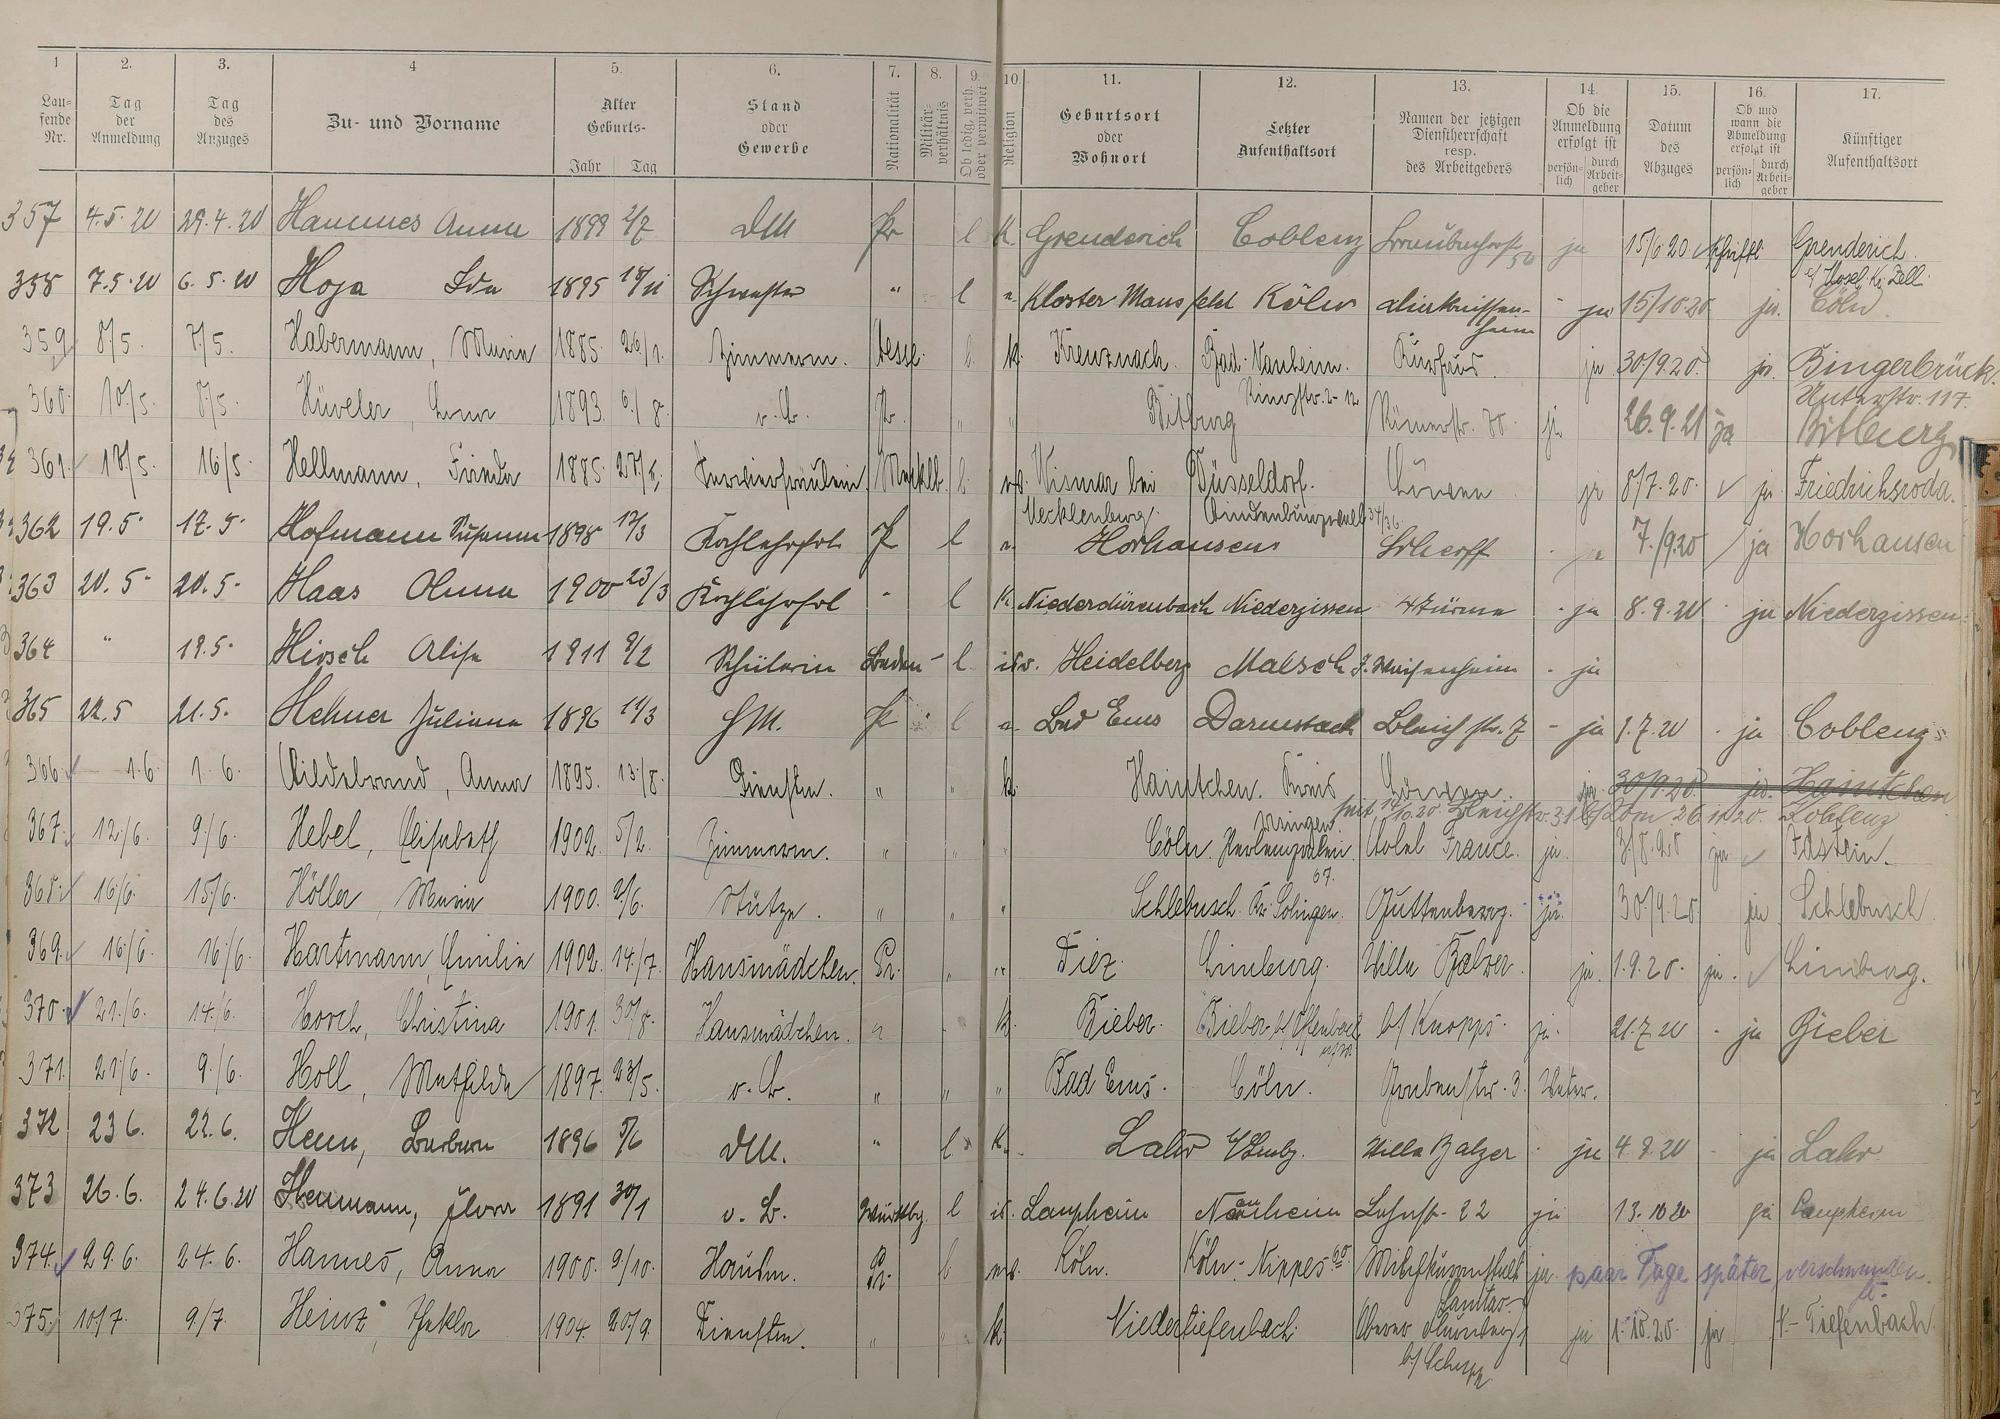 1 2. 3. 4 5. 6. 7. 8. 9. 10. 11. 12. 13. 14. 15. 16. 17.
Laufende Nr.
Tag der Anmeldung
Tag des Anzuges
Zu- und Vorname
Alter Geburts-
Jahr Tag
Stand oder Gewerbe
Nationalität
Militärverhältnis
Ob ledig, verh. oder verwitwet
Religion
Geburtsort oder Wohnort
Letzter Aufenthaltsort
Namen der jetzigen Dienstherrschaft resp. des Arbeitgebers
Ob die Anmeldung erfolgt ist
persönlich durch Arbeitgeber
Datum des Abzuges
Ob und wann die Abmeldung erfolgt ist
persönlich durch Arbeitgeber
Künftiger Aufenthaltsort
357 4.5.20 29.4.20 Hammes Anna 1899 2/7 DM Pr l k. Grenderich Coblenz 56 ja 15/6 20 schriftl. Grenderich
a/ Mosel Kr. Zell
358 7.5.20 6.5.20 Hoja Ida 1895 18/11 Schwester " l Kloster Mansfeld Köln Diakonissen- - ja 15/10.20 ja. Cöln.
heim
359 8/5. 7/5. Habermann, Maria 1885. 26/1. Zimmerm. Hess. l. k. Kreuznach. Bad-Nauheim. Kurhaus. ja 30/9.20. ja. Bingerbrück.
360. 10/5. 8/5. Hüweler, 1893. 6./8. o.B. Pr. " " Bitburg Römerstr. 70. ja. 26.9.21 ja Bitburg
361. 18/5. 16/5. Hellmann, Frieda 1885. Mecklb. l. ev. Wismar bei Düsseldorf. Löwen ja 8/7.20. ja. Friedrichsroda.
Mecklenburg. Hindenburgwall 34/36
362 19.5. 17.5. Hofmann Susanna 1898 17/3 Kochlehrfrl. Pr l Horhausen - ja 7./9.20 ja Horhausen
363 20.5- 20.5- Haas Anna 1900 23/3 Kochlehrfrl - l k. Niederdürenbach Niederzissen 4 Türme - ja 8.9.20 ja Niederzissen.
364 " 19.5. Hirsch Alise 1911 9/2 Schülerin Baden- l isr. Heidelberg Malsch J. Waisenheim - ja
365 22.5 21.5. Hehner Juliana 1896 14/3 HM. Pr l Bad Ems Darmstadt Bleichstr. 7 - ja 1.7.20 - ja Coblenz
366. 1.6 1.6. Hildebrand, Anna 1895. 13./8. Dienstm. " " k. Haintchen. Kreis Löwen. ja. 30/9.20. ja. Haintchen
seit 14/10.20. Bleichstr. 31 26.11.20. Koblenz
367. 12./6. 9./6. Hebel, Elisabeth 1902. 5/2. Zimmerm. " " " Cöln. Hotel France. ja. 3/8.20 ja Idstein.
67.
368. 16/6. 15/6. Höller, Maria 1900. 2/6. Stütze. " " " Schlebusch. Kr. Solingen. Guttenberg. ja. 30./9.20 ja Schlebusch
369. 16/6. 16./6. Hartmann, Emilie 1902. 14./7. Hausmädchen. Pr. " " Diez. Limburg. Villa Balzer. ja. 1.9.20. ja. Limburg.
370. 21./6. 14./6. Horch, Christina 1901. 30/8. Hausmädchen. " k. Bieber. Bieber b/ Offenbach b/ Knopps. ja. 21.7.20 - ja Bieber
371. 21/6. 9./6. Holl, Mathilde 1897. 23/5. o.B. " " " Bad Ems. Cöln. Grabenstr. 3. Vater.
372 23 6. 22.6. Henn, Barbara 1896 5/6 DM. " l. k. Lahr b/ Limbg. Villa Balzer - ja 4.9.20 - ja Lahr
373 26.6. 24.6.20 Heumann, Flora 1891 30/1 o.B. Württbg. l is. Laupheim Nauheim Lahnstr. 22 ja 13.10 20 ja Laupheim
374. 29.6. 24.6. Hannes, Anna 1900. 9./10. Hausm. Pr. l. ev. Köln. Köln-Nippes ja. paar Tage später verschwunden.
Sanitas.
375. 10/7. 9/7. Heinz, Thekla 1904. 20/9. Dienstm. " k. Niedertiefenbach. ja 1.10.20. ja N.-Tiefenbach.